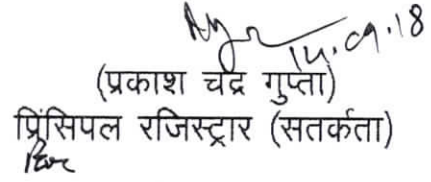 14.09.18
(प्रकाश चंद्र गुप्ता)
प्रिंसिपल रजिस्ट्रार (सतर्कता)